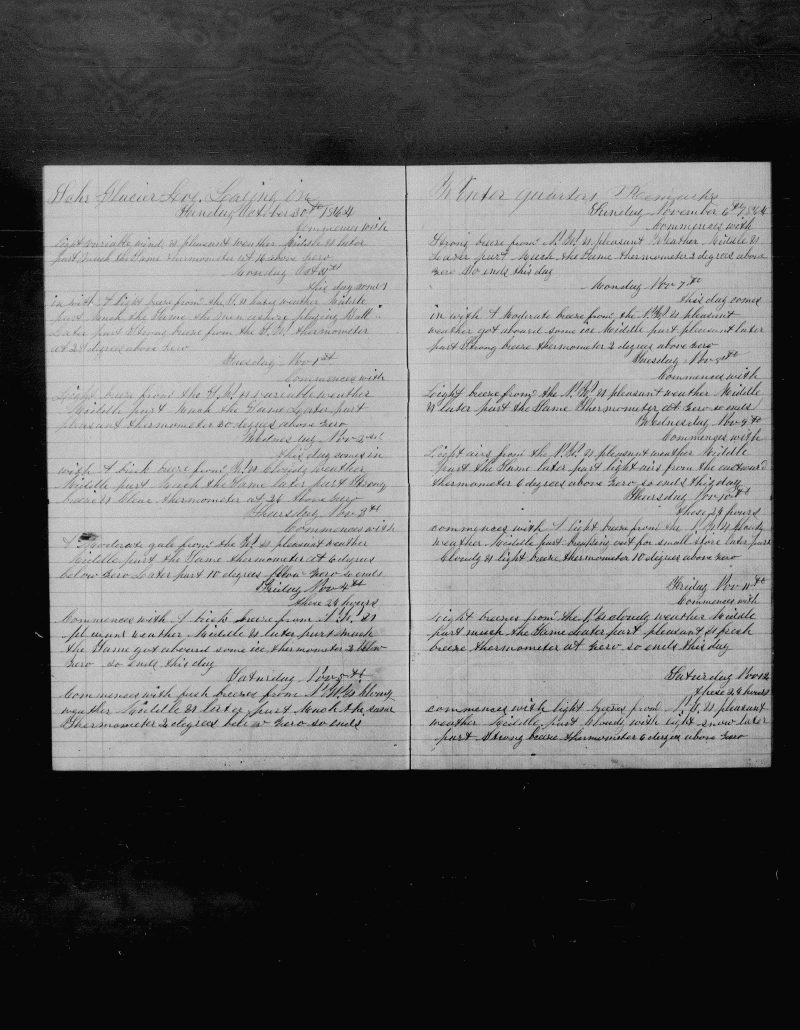 Schr Glacier Love, Laying in
Sunday October 30th 1864
Commences with
light variable winds & pleasant weather Middle & later
part much the Same thermometer at 16 above zero
Monday Oct 31st
this day comes
in with A light breze from the & hazy weather Middle
part Much the Same the men ashore playing Ball
Later part Strong breeze from the thermometer
at 28 degrees above zero
Tuesday Nov 1st
Commences with
Light breze from the & variable weather
Middle part Much the Same Later part
pleasant thermometer 30 degres above zero
Wednesday Nov 2nd
this day comes in
with A brisk breze from & Cloudy weather
Middle part Much the Same later part Strong
breeze & Clear thermometer at 28 above zero
Thursday Nov 3th
Commences with
A Moderate gale from the & pleasant weather
Middle part the Same thermometer at 6 degres
below zero Later part 10 degrees below zero so ends
Friday Nov 4th
these 24 hours
Commences with A brisk breeze from &
pleasant weather Middle & later part Much
the Same got aboard some ice thermometer 2 below
zero so ends this day
Saturday Nov 5th
Commences with fresh breezes from N.W. & cloudy
weather Middle & later part Much the same
thermometer 2 degrees below zero so ends
Winter quarters Remarks
Sunday November 6th 1864
Commences with
Strong breeze from N.W. & pleasant Weather Middle &
Later part Much the Same thermometer 2 degrees above
zero So ends this day
Monday Nov 7th
this day comes
in with A Moderate breeze from the N.W. & pleasant
weather got aboard some ice Middle part pleasant later
part Strong breeze thermometer 2 degrees above zero
Tuesday Nov 8th
Commences with
Light breeze from the N.W. & pleasant weather Middle
& later part the Same Thermometer at zero so ends
Wednesday Nov 9th
Commences with
Light airs from the N.W. & pleasant weather Middle
part the Same later part light airs from the eastward
thermometer 6 degrees above zero, so ends this day
Thursday Nov 10th
these 24 hours
commences with A light breeze from the & cloudy
weather Middle part breaking out for small store later part
Cloudy & light breeze thermometer 10 degrees above zero
Friday Nov 11th
Commences with
Light breezes from the & cloudy weather Middle
part much the Same Later part pleasant & fresh
breeze thermometer at zero so ends this day
Saturday Nov 12
these 24 hours
commences with light breezes from & pleasant
weather Middle part cloudy with light snow later
part Strong breeze thermometer 6 degres above zero